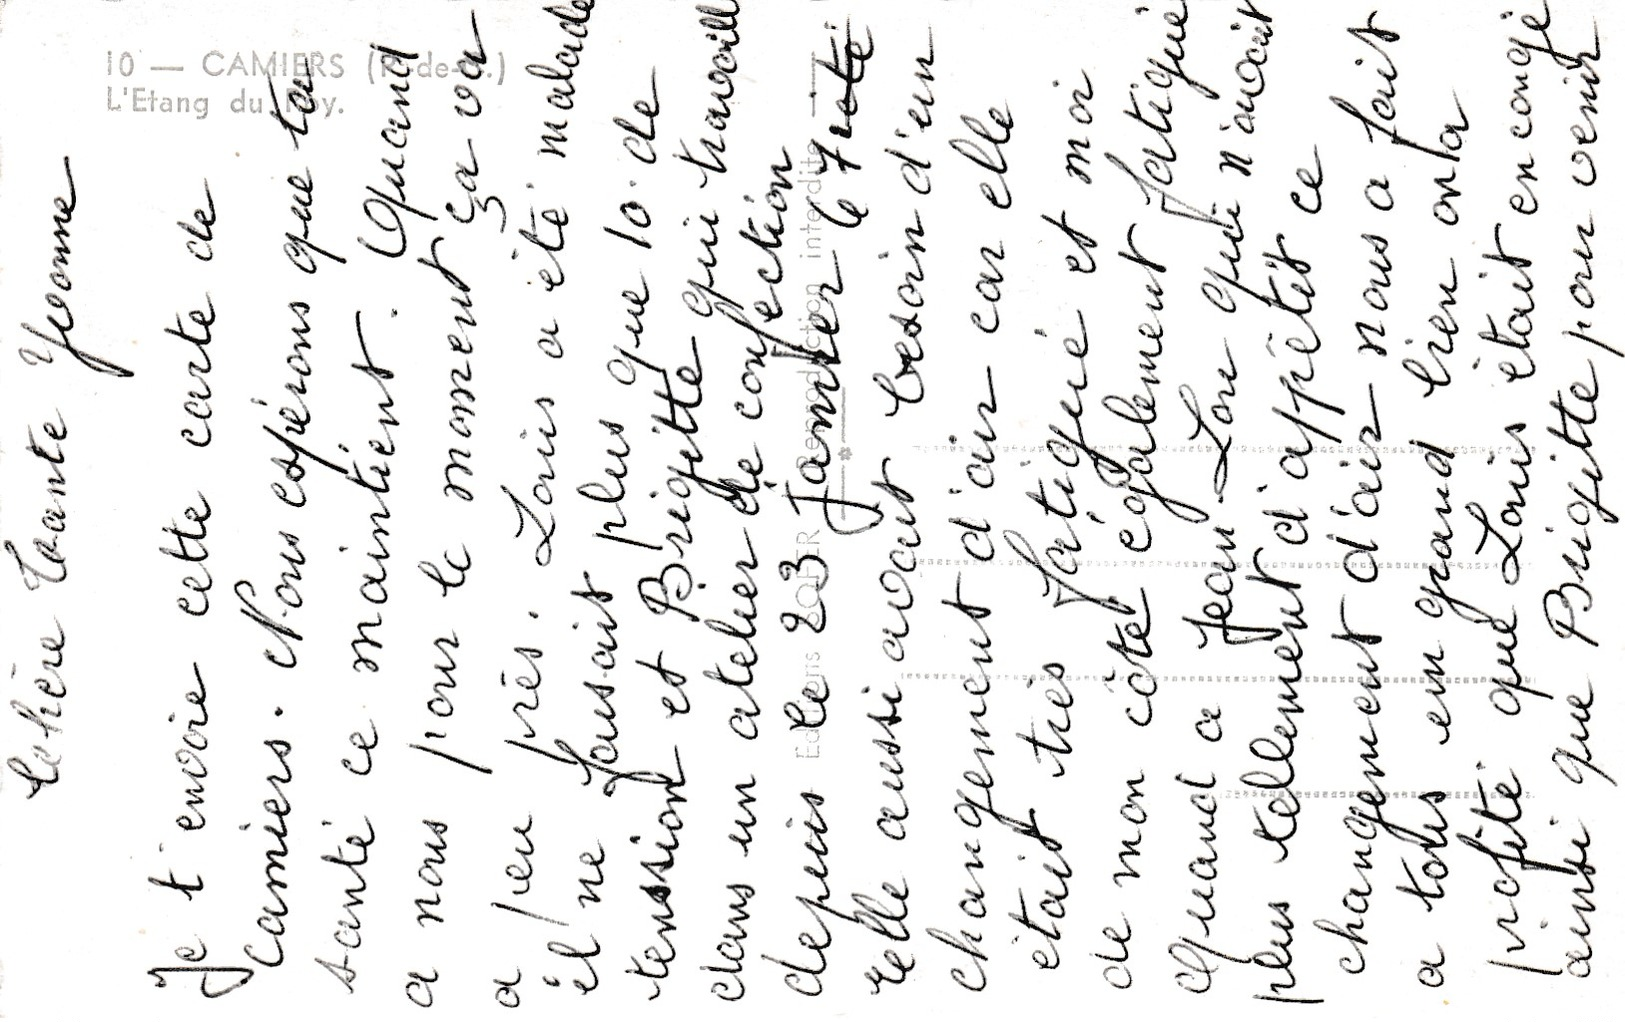 10 — CAMIERS (P.-de-C.)
L'Etang du Roy.
Editions SOFER - Reproduction interdite
Chère tante Yvonne
Je t'envoie cette carte de
Camiers. Nous espérons que ta
santé ce maintient. Quand
a nous pour le moment ça va
a peu près. Louis a été malade
il ne faisait plus que 10 de
tension et Brigitte qui travaille
dans un atelier de confection
depuis le 23 Janvier le 7
elle aussi avait besoin d'un
changement d'air car elle
était très fatigué et moi
de mon côté également fatiguée
quand a Jean-Lou qui n'avait
plus tellement d'appêtit ce
changement d'air nous a fait
a tous un grand bien on a
profité que Louis était en congé
ainsi que Brigitte pour venir